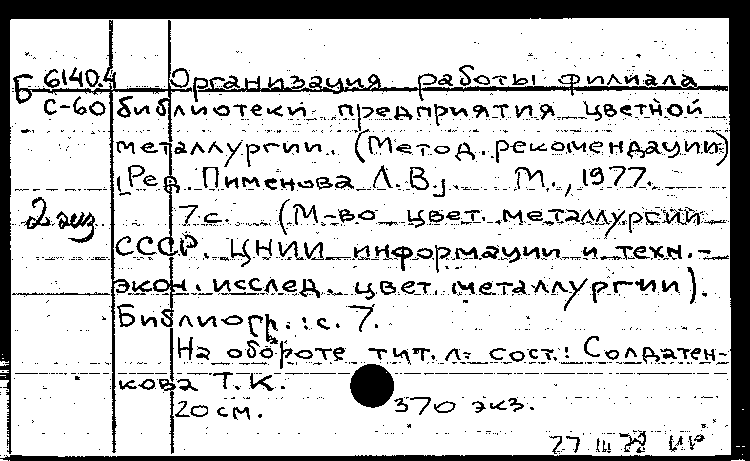 Б 6140.4 Организация работы филиала
С-60 библиотеки предприятия цветной
металлургии. (Метод. рекомендации)
[Ред. Пименова Л.В.]. М., 1977.
2 экз 7 с. (М-во цвет. металлургии
СССР. ЦНИИ информации и техн.-
экон. исслед. цвет. металлургии).
Библиогр.: с. 7.
На обороте тит. л. сост.: Солдатен-
кова Т.К.
20 см. 370 экз.
27 III 78